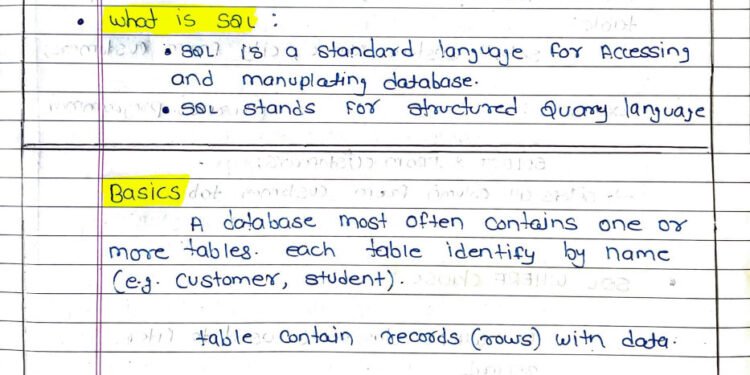 • What is SQL :
• SQL is a standard language for Accessing
and manuplating database.
• SQL stands for structured Quary language
Basics
A database most often contains one or
more tables. each table identify by name
(e.g. customer, student).
table contain records (rows) with data.